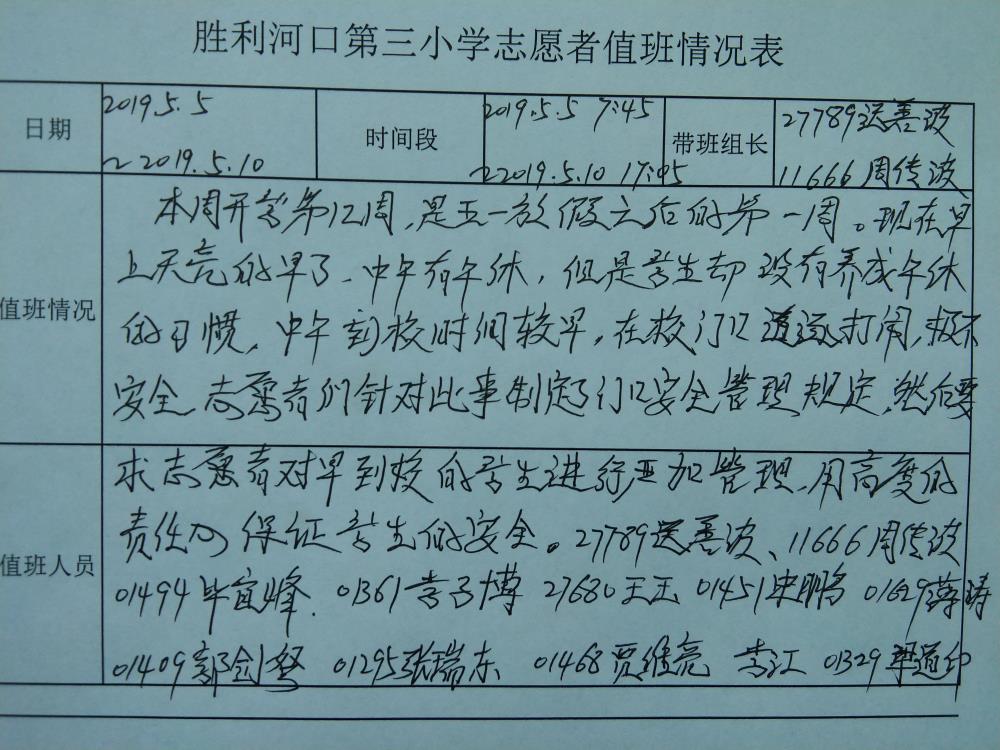 胜利河口第三小学志愿者值班情况表
日期 2019.5.5 ~2019.5.10 时间段 2019.5.5 7:45 ~2019.5.10 17:05 带班组长 27789 善波 11666周传波
值班情况
本周开学第12周,是五一放假之后的第一周。现在早
上天亮的早了、中午有午休,但是学生却没有养成午休
的习惯,中午到校时间较早,在校门口追逐打闹,极不
安全、志愿者们针对此事制定了门口安全管理规定,然后要
值班人员
求志愿者对早到校的学生进行严加管理、用高度的
责任心保证学生的安全。27789 善波、11666周传波
01494毕宜峰、01361李子博 27680王玉 01451宋鹏 01629薛涛
01409郭剑 01295张瑞东 01468贾继亮 李江 01329 道印